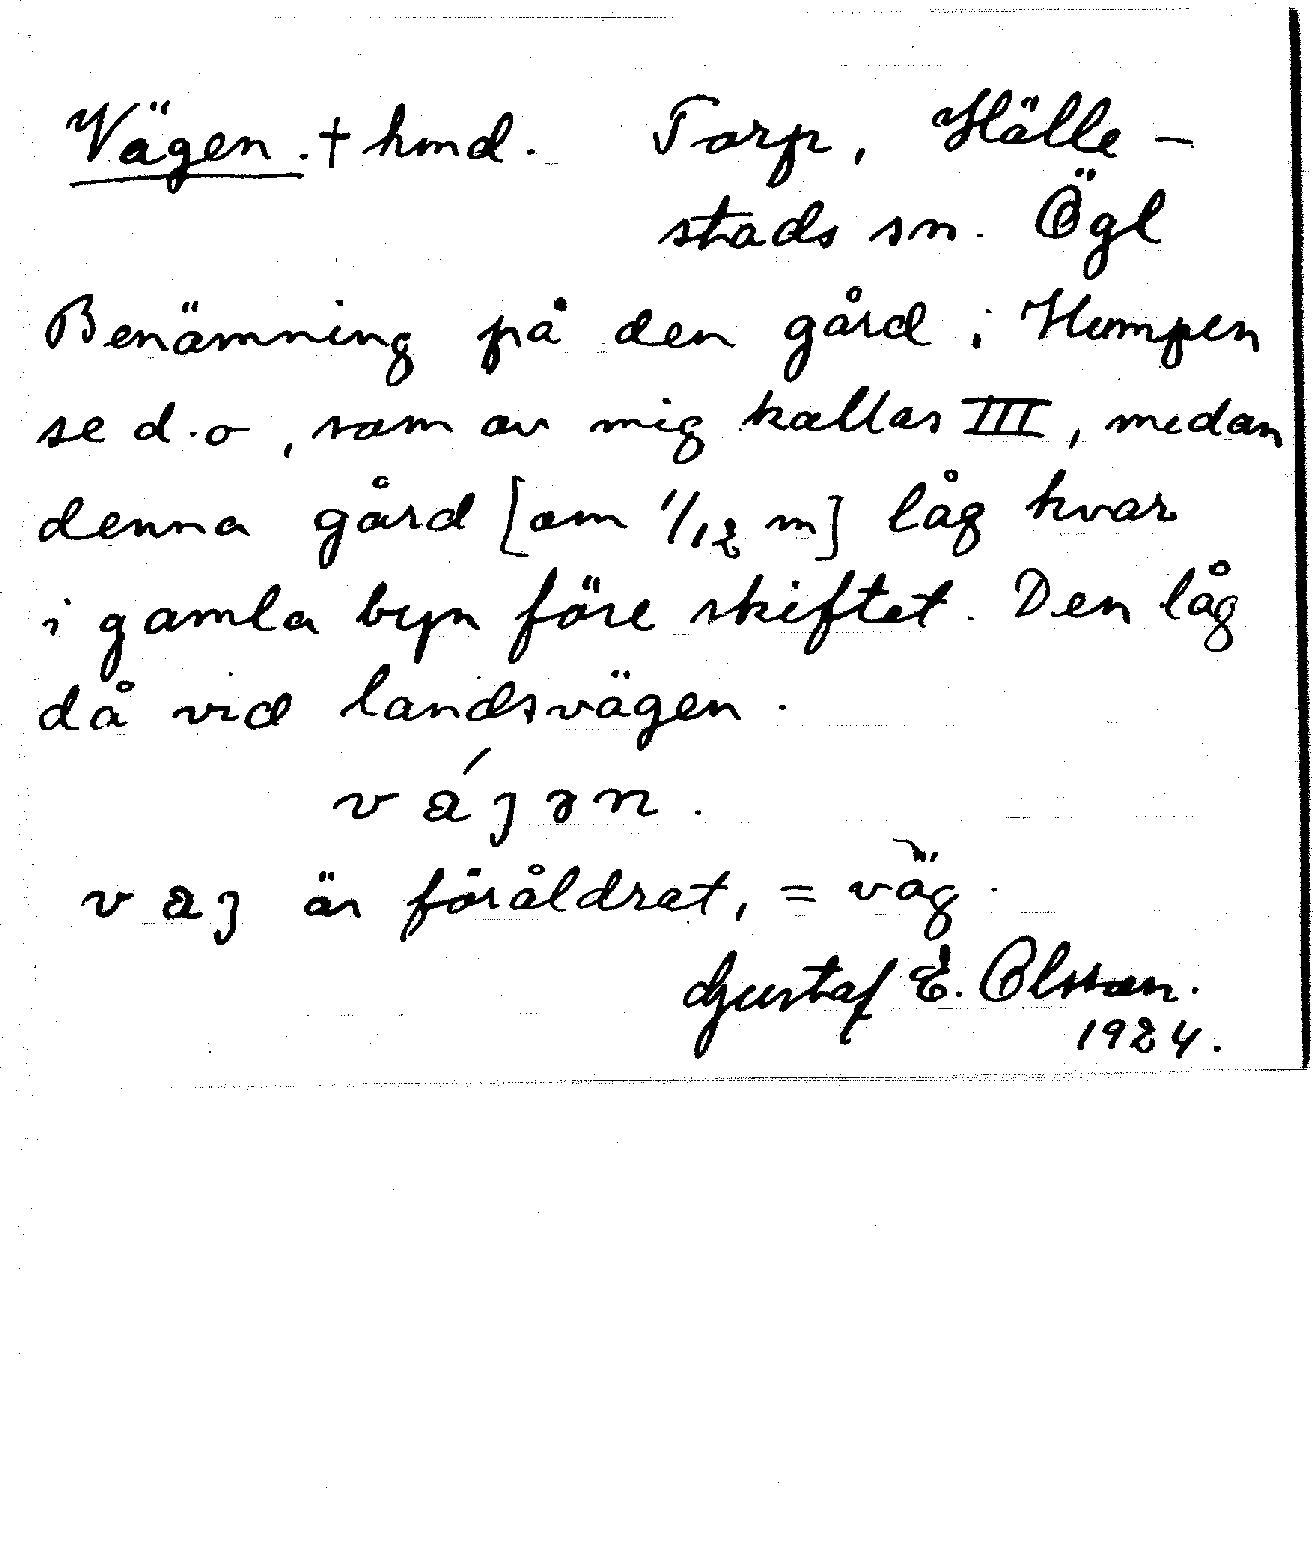 Vägen. † hmd. Torp, Hälle-
stads sn. Ögl
Benämning på den gård i Humpen
se d.o, som av mig kallas III, medan
denna gård [om 1/12 m] låg kvar
i gamla byn före skiftet. Den låg
då vid landsvägen.
vájən.
vaj är föråldrat, = väg.
Gustaf E. Olsson.
1924.